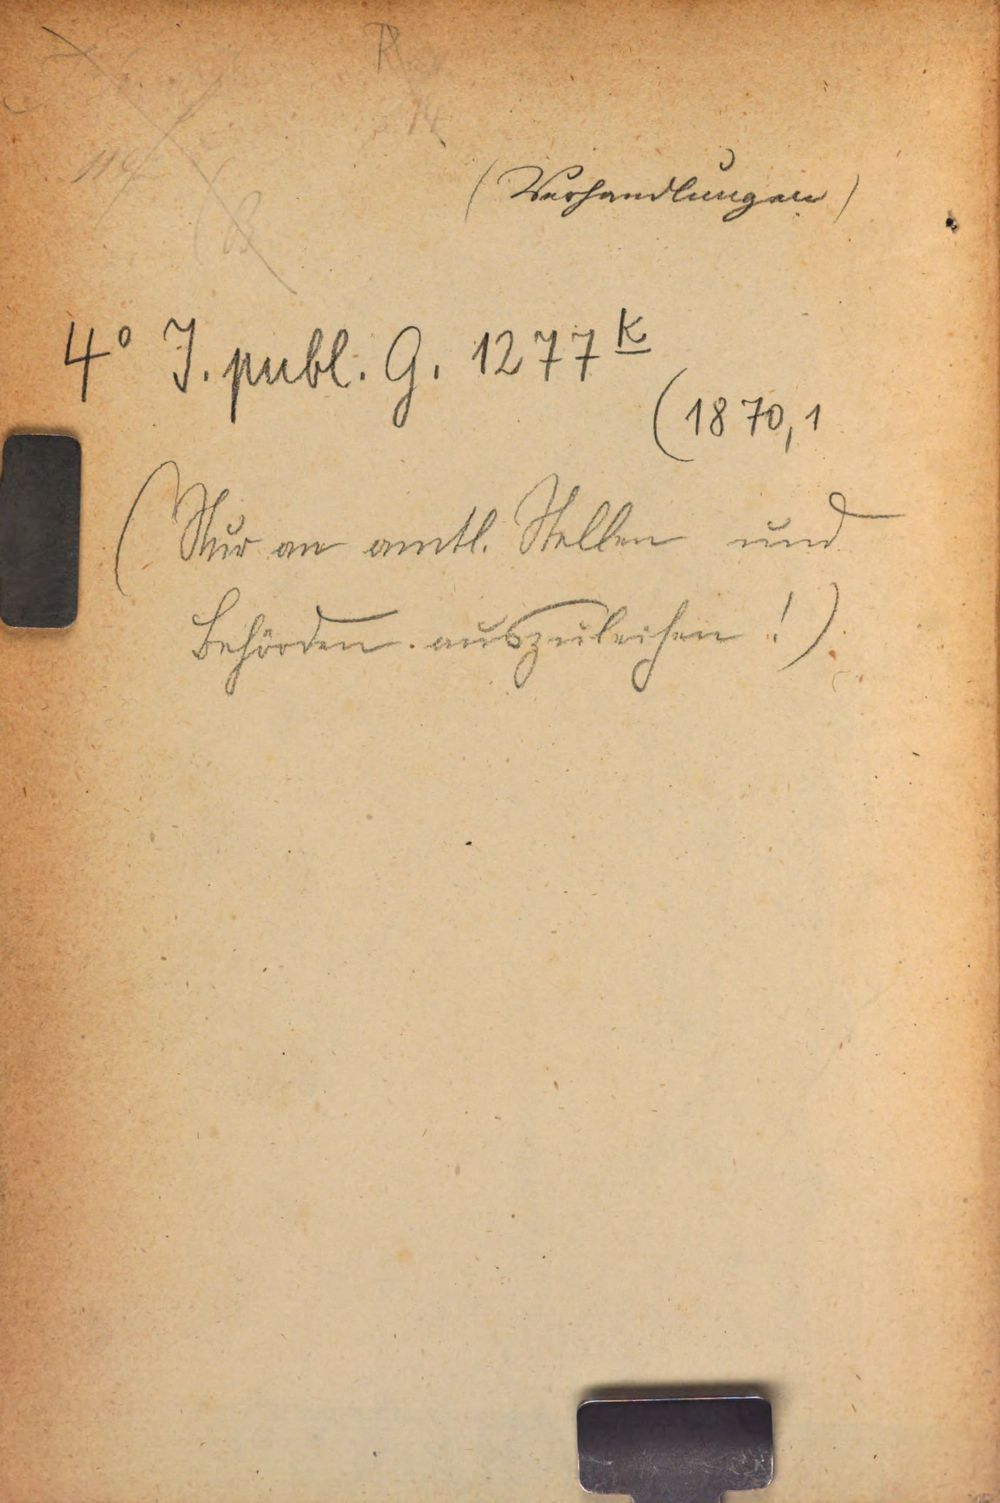 (Verhandlungen)
4° J. publ. G. 1277 k
(1870,1
(Nur an amtl. Stellen und
Behörden auszuleihen!)